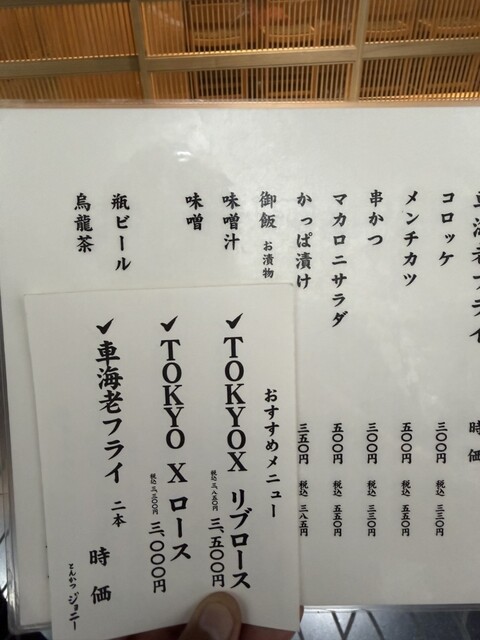 車海老フライ 時価
コロッケ 三〇〇円 税込 三三〇円
メンチカツ 五〇〇円 税込 五五〇円
串かつ 三〇〇円 税込 三三〇円
マカロニサラダ 五〇〇円 税込 五五〇円
かっぱ漬け 三五〇円 税込 三八五円
御飯 お漬物
味噌汁
味噌
瓶ビール
烏龍茶
おすすめメニュー
✓TOKYOX リブロース 税込 三、八五〇円 三、五〇〇円
✓TOKYO X ロース 税込 三、三〇〇円 三、〇〇〇円
✓車海老フライ 二本 時価
とんかつ ジョニー